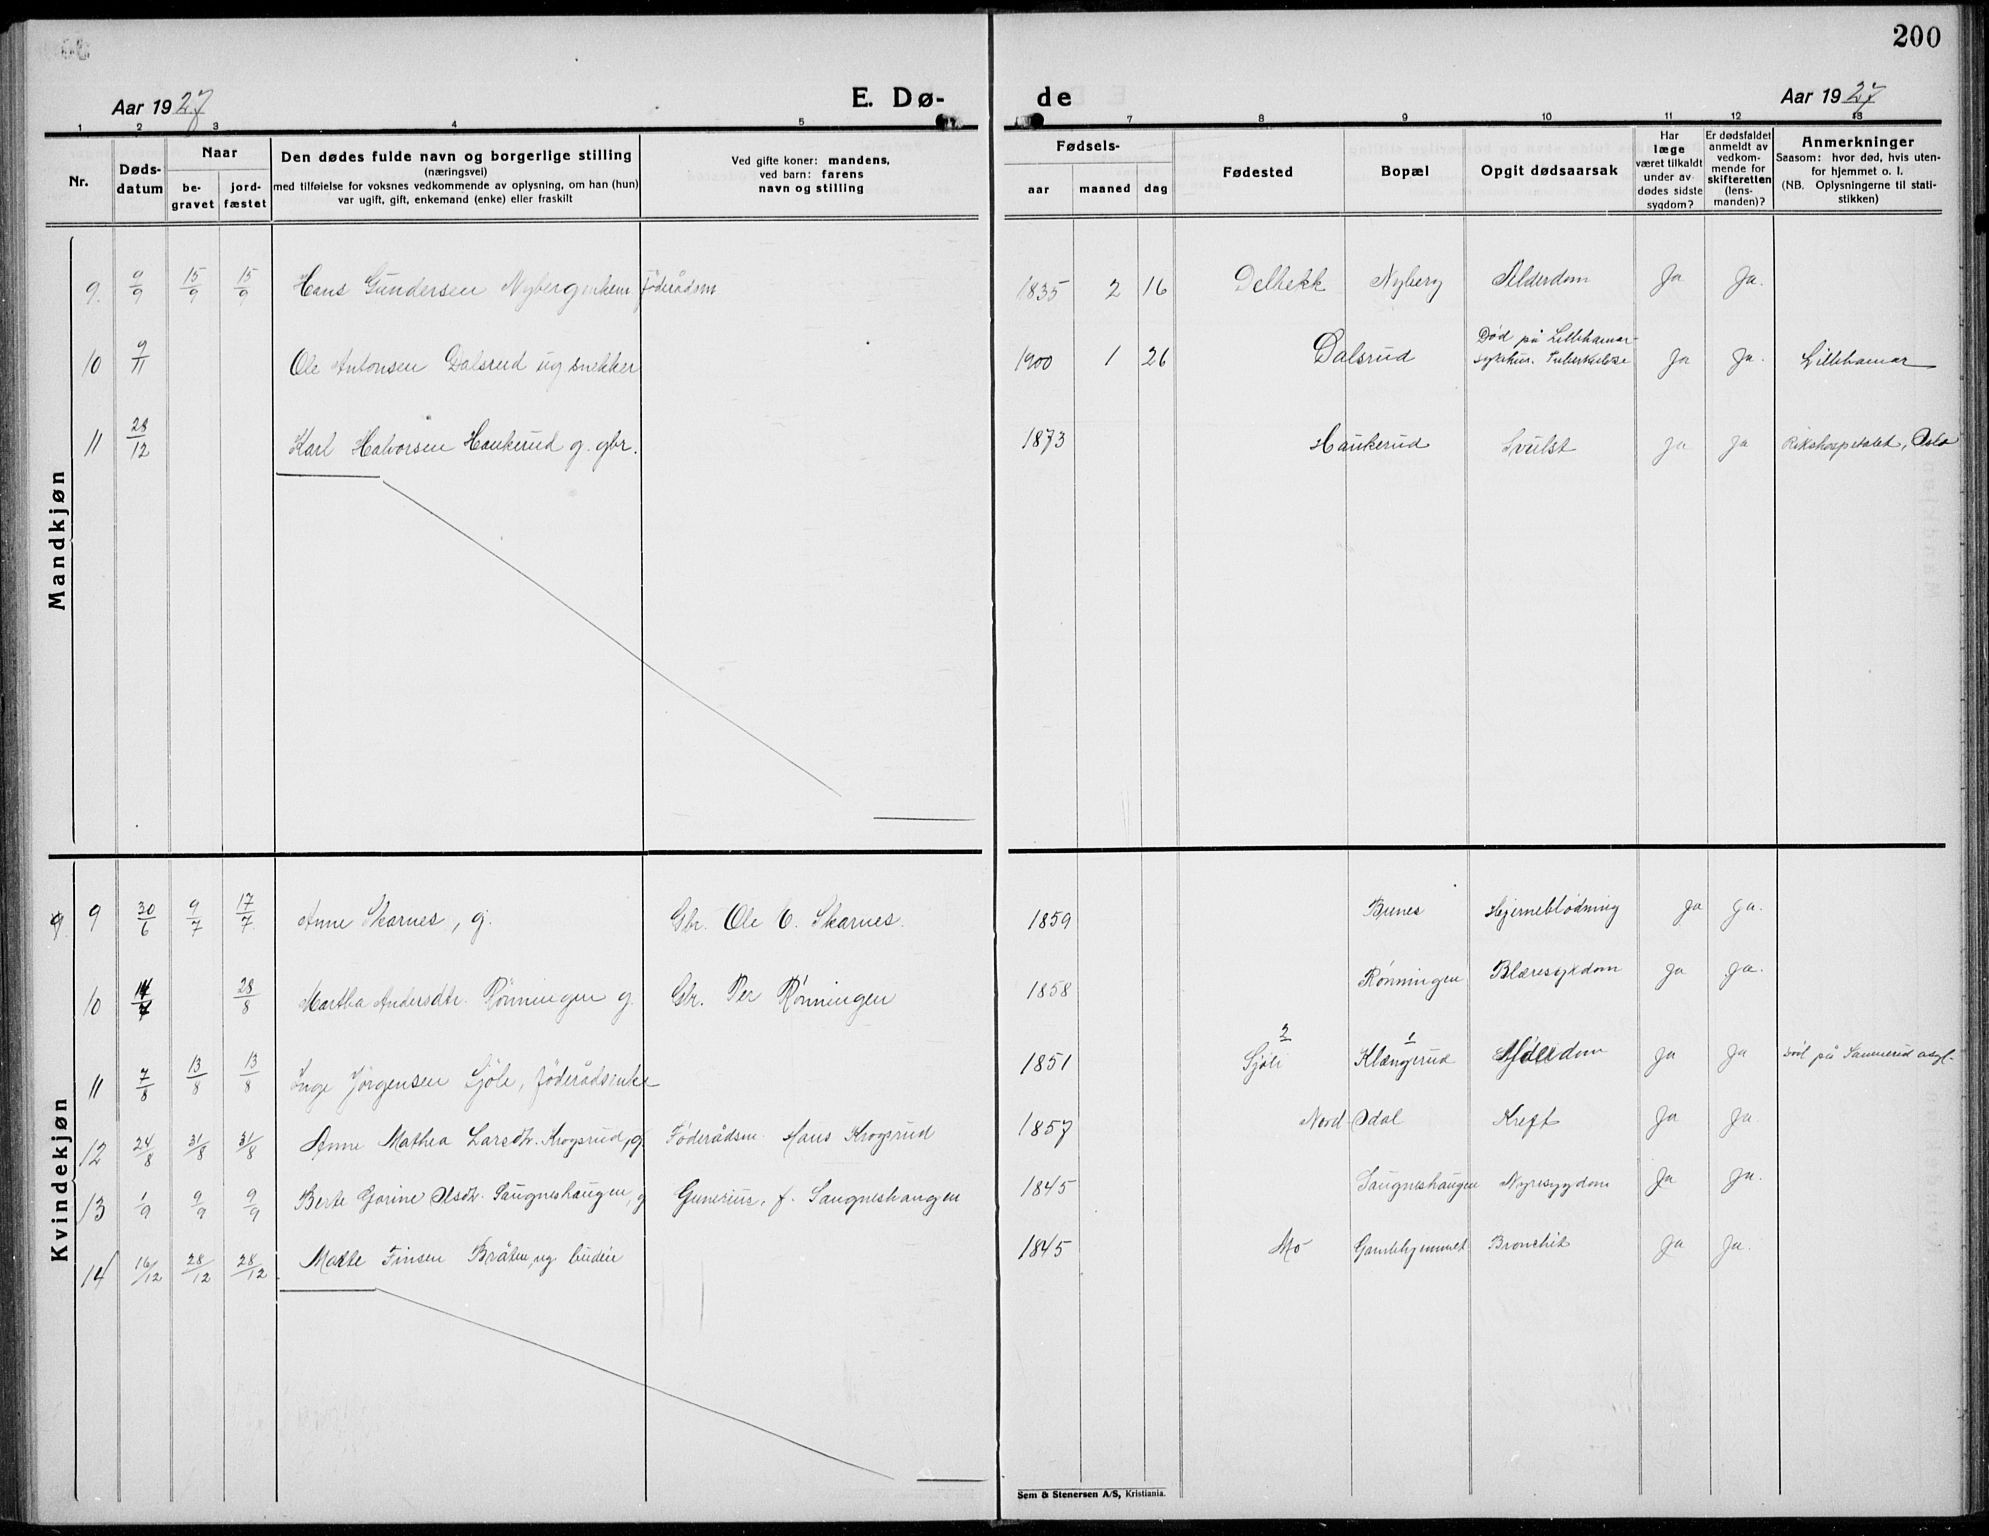 200
Aar 1927
E. Dø-
de
Aar 1927
1 2 3 4 5 7 8 9 10 11 12 13
Nr.
Døds-
datum
Naar
be-
gravet
jord-
fæstet
Den dødes fulde navn og borgerlige stilling
(næringsvei)
med tilføielse for voksnes vedkommende av oplysning, om han (hun)
var ugift, gift, enkemand (enke) eller fraskilt
Ved gifte koner: mandens,
ved barn: farens
navn og stilling
Fødsels-
aar maaned dag
Fødested
Bopæl
Opgit dødsaarsak
Har
læge
været tilkaldt
under av-
dødes sidste
sygdom?
Er dødsfaldet
anmeldt av
vedkom-
mende for
skifteretten
(lens-
manden)?
Anmerkninger
Saasom: hvor død, hvis uten-
for hjemmet o. l.
(NB. Oplysningerne til stati-
stikken)
Mandkjøn
9. 9/9 15/9 15/9 Hans Gundersen Nyberg enkem föderådsm 1835 2 16 Delbekk Nyberg Alderdom Ja Ja.
Død på Lillehamar
10 9/11 Ole Antonsen Dalsrud ug snekker 1900 1 26 Dalsrud sykehus. Tuberkulose Ja Ja. Lillehamar
11 28/12 Karl Halvorsen Haukerud g. gbr. 1873 Haukerud Svulst Ja Ja Rikshospitalet, Oslo
Kvindekjøn
9 9 30/6 9/7 17/7 Anne Skarnes, g. Gbr. Ole C. Skarnes. 1859 Bunes Hjerneblödning Ja Ja.
10 28/8 Martha Andersdtr. Rönningen g. Gbr. Per Rönningen 1858 Rönningen Blæresykdom Ja Ja.
2 1
11 7/8 13/8 13/8 Inge Jörgensen Sjöli, föderådsenke 1851 Sjöli Klængerud Alderdom Ja Ja död på Sannerud asyl.
12 24/8 31/8 31/8 Anne Mathea Larsdtr. Krogsrud, g Föderådsm. Hans Krogsrud 1857 Nord-Odal Kreft Ja Ja.
13 1/9 9/9 9/9 Berte Gorine Olsdtr. Saugneshaugen, g Gunerius. f. Saugneshaugen 1845 Saugneshaugen Nyresygdom Ja Ja.
14 16/12 28/12 28/12 Marte Finsen Bråten, ug budeie 1845 Mo Gamlehjemmet Bronchit Ja Ja.
Sem & Stenersen A/S, Kristiania.